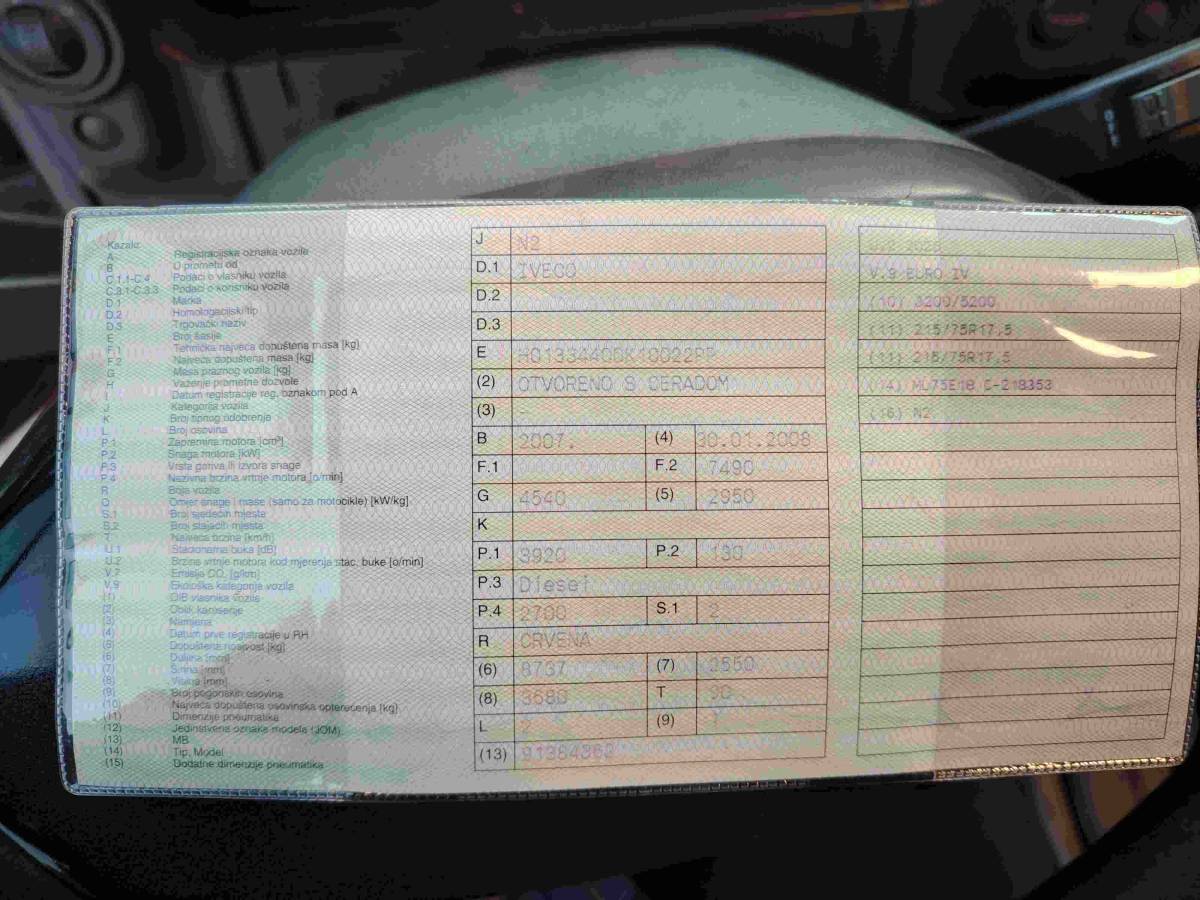 Kazalo:
A Registracijska oznaka vozila
B U prometu od
C.1.1-C.4 Podaci o vlasniku vozila
C.3.1-C.3.3 Podaci o korisniku vozila
D.1 Marka
D.2 Homologacijski tip
D.3 Trgovački naziv
E Broj šasije
F.1 Tehnička najveća dopuštena masa [kg]
F.2 Najveća dopuštena masa [kg]
G Masa praznog vozila [kg]
H Važenje prometne dozvole
I Datum registracije reg. oznakom pod A
J Kategorija vozila
K Broj tipnog odobrenja
L Broj osovina
P.1 Zapremina motora [cm³]
P.2 Snaga motora [kW]
P.3 Vrsta goriva ili izvora snage
P.4 Nazivna brzina vrtnje motora [o/min]
R Boja vozila
Q Omjer snage i mase (samo za motocikle) [kW/kg]
S.1 Broj sjedećih mjesta
S.2 Broj stajaćih mjesta
T Najveća brzina [km/h]
U.1 Stacionarna buka [dB]
U.2 Brzina vrtnje motora kod mjerenja stac. buke [o/min]
V.7 Emisija CO₂ [g/km]
V.9 Ekološka kategorija vozila
(1) OIB vlasnika vozila
(2) Oblik karoserije
(3) Namjena
(4) Datum prve registracije u RH
(5) Dopuštena nosivost [kg]
(6) Duljina [mm]
(7) Širina [mm]
(8) Visina [mm]
(9) Broj pogonskih osovina
(10) Najveća dopuštena osovinska opterećenja [kg]
(11) Dimenzije pneumatika
(12) Jedinstvena oznaka modela (JOM)
(13) MB
(14) Tip, Model
(15) Dodatne dimenzije pneumatika
J N2
D.1 IVECO
D.2
D.3
E
(2) OTVORENO S CERADOM
(3) -
B 2007. (4) 30.01.2008
F.1 F.2 7490
G 4540 (5) 2950
K
P.1 3920 P.2 130
P.3 Diesel
P.4 2700 S.1 2
R CRVENA
(6) 8737 (7) 2550
(8) 3680 T 90
L 2 (9) 1
(13)
V.9 EURO IV
(10) 3200/5200
(11) 215/75R17,5
(11) 215/75R17,5
(14) ML75E18 C-218353
(16) N2